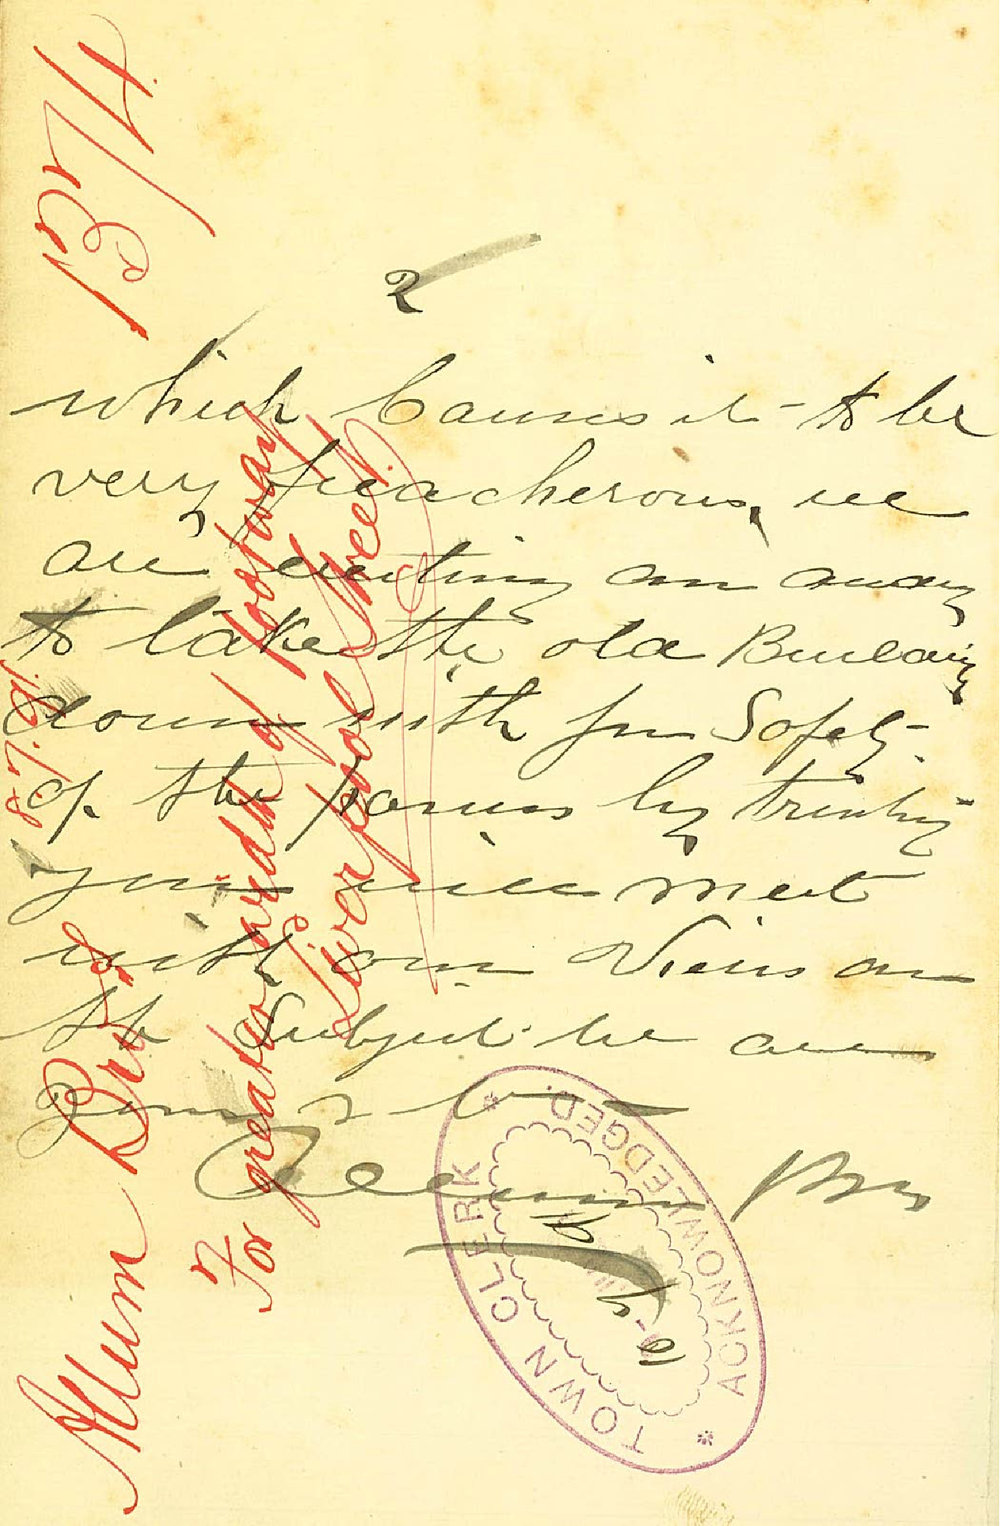 2
which Causes it to be
very treacherous, we
are waiting on away
to take the old Building
down with for Safety
of the passers by trusting
you will meet
with our Views on
the Subject We are
Yours &c
Allum Bros
Allum Bros
For greater width of footway
Liverpool Street.
TOWN CLERK
ACKNOWLEDGED.